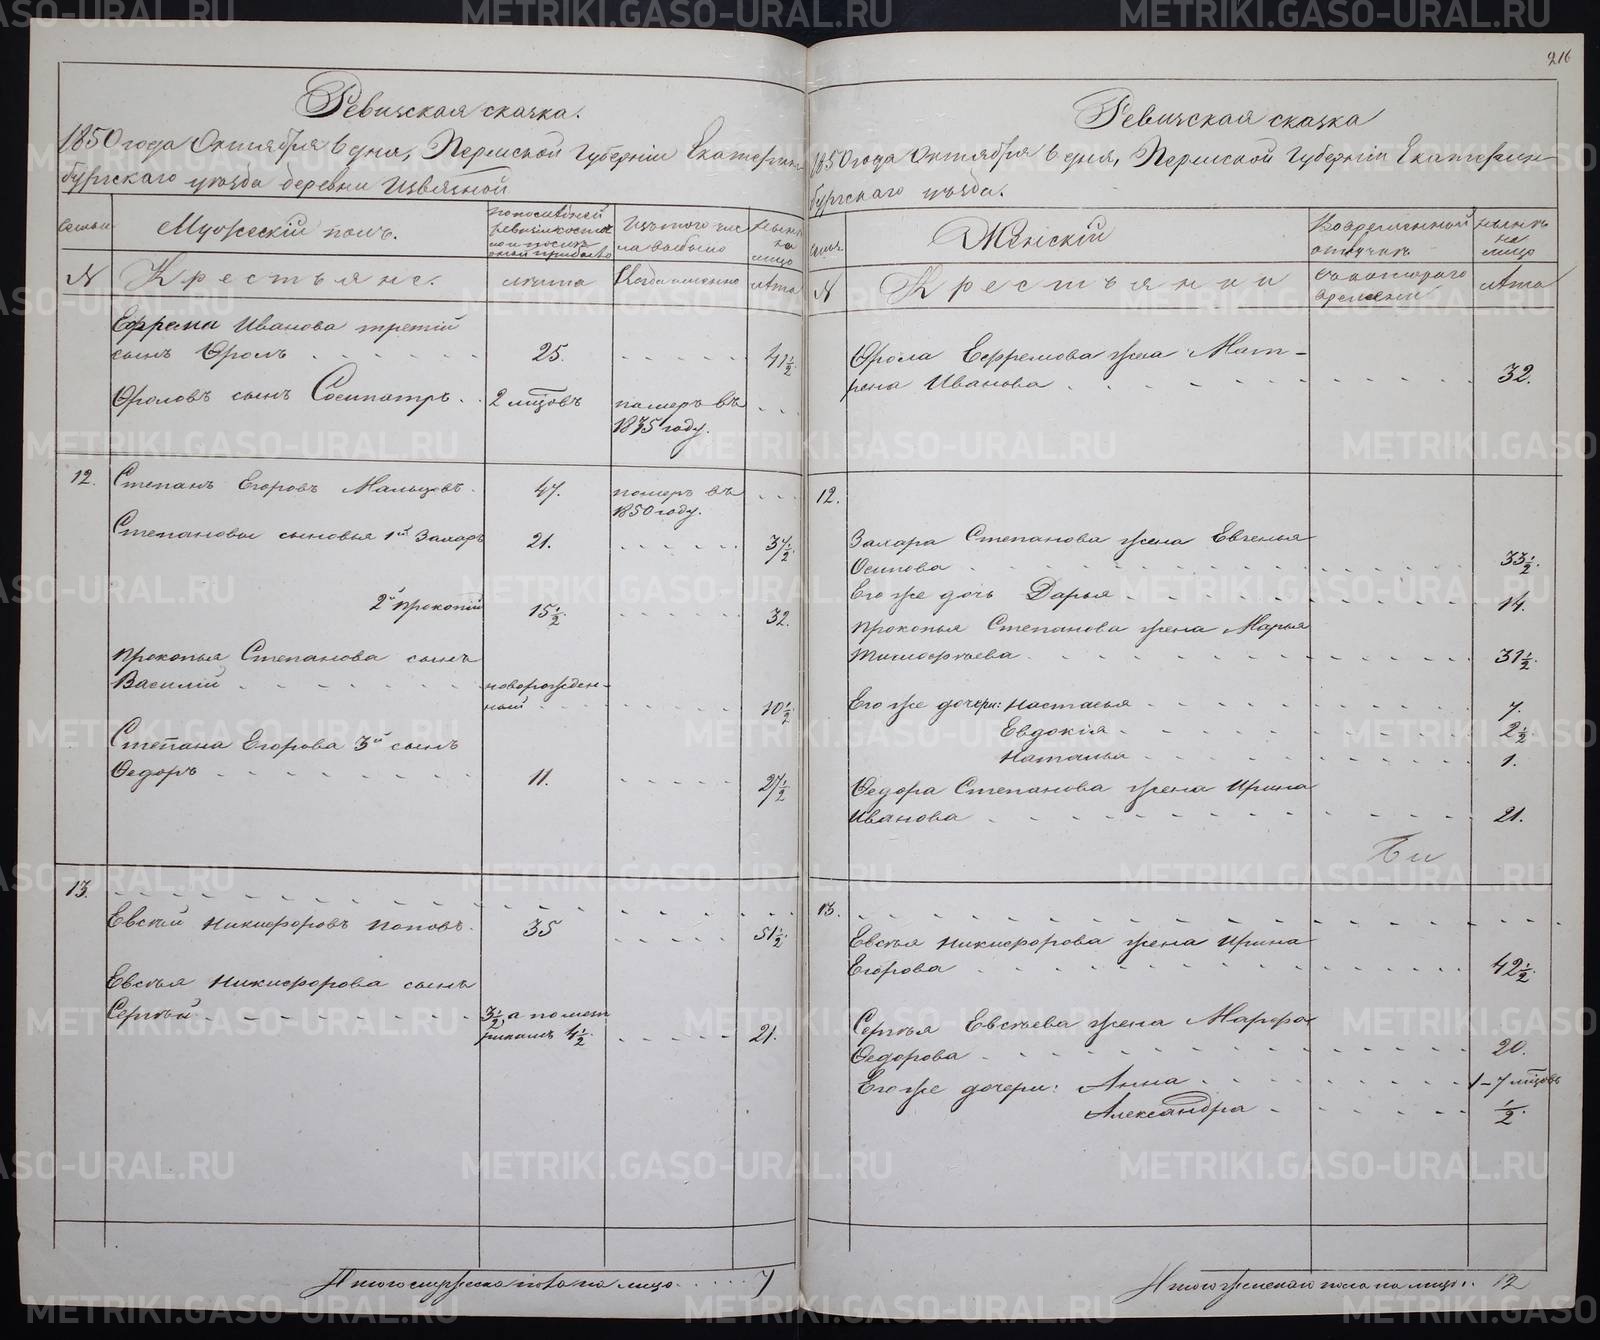 Ревизская сказка.
1850 года Октября 6 дня, Пермской губернiи Екатерин-
бургскаго уѣзда деревни
Семьи
Мужескiй полъ.
по послѣдней
ревизiи состоя
ло и послѣ
оной прибыло
Изъ того чис
ла выбыло
Нынѣ
на
лицо
N
Крестьяне.
лѣта
Когда именно
лѣта
Ефрема Иванова третiй
сынъ Фролъ . . . . . . 25. . . . . . 41½
Фроловъ сынъ Сосипатръ . . 2 мѣсцовъ померъ въ . . .
1835 году.
12. Степанъ Егоровъ Мальцовъ. 47. померъ въ . . .
1850 году.
Степановы сыновья 1й Захаръ 21. . . . . . . 37½.
2й Прокопiй 15½ . . . . . . 32.
Прокопья Степанова сынъ
Василiй . . . . . . новорожден-
ный . . . . . . 10½
Степана Егорова 3й сынъ
Федоръ . . . . . . . . 11. . . . . . 27½
13. . . . . . . . . . . . . . . . .
Евсѣй Никифоровъ Поповъ. 35 . . . . . 51½.
Евсѣя Никифорова сынъ
Сергѣй . . . . . . . . 3½ а по мет
рикамъ 4½. . . . . . 21.
Итого мужеска пола на лицо . . . . . 7
216
Ревизская сказка
1850 года Октября 6 дня, Пермской губернiи Екатерин-
бургскаго уѣзда.
Женскiй
Во временной
отлучкѣ
Нынѣ
на
лицо
N
Крестьянки
съ котораго
времени
лѣта
Фрола Ефремова жена Мат-
рена Иванова . . . . . . . . . . 32.
12.
Захара Степанова жена Евгенья
Осипова . . . . . . . . . . 33½.
Его же дочь Дарья . . . . . . . . . 14.
Прокопья Степанова жена Марья
Тимофѣева . . . . . . . . . 31½.
Его же дочери: Настасья . . . . . . . . 7.
Евдокiя . . . . . . . . 2½.
Наталья . . . . . . . . 1.
Федора Степанова жена Ирина
Иванова . . . . . . . . . . 21.
13. . . . . . . . . . . . . . . . .
Евсѣя Никифорова жена Ирина
Егорова . . . . . . . . . . 42½.
Сергѣя Евсѣева жена Марфа
Федорова . . . . . . . . . . 20.
Его же дочери: Анна . . . . . . . 1 – 7 мѣсцовъ
Александра . . . . . ½.
Итого женскаго пола на лицо . . 12
METRIKI.GASO-URAL.RU